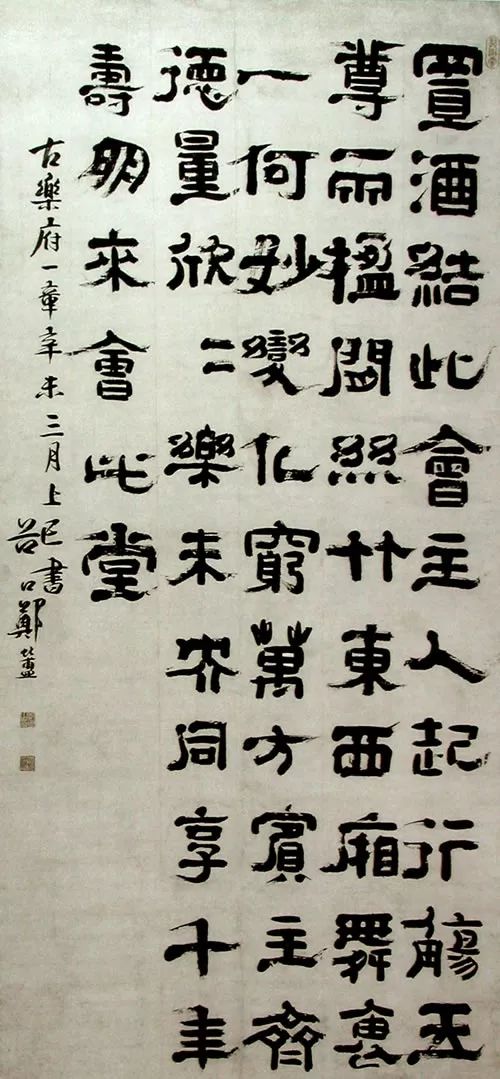 置酒結此會主人起行觴玉
尊兩楹閒絲竹東西廂舞袖
一何妙變化窮萬方賓主齊
德量欣二樂未央同享千年
壽朋來會此堂
古樂府一章辛未三月上巳書
谷口鄭簠